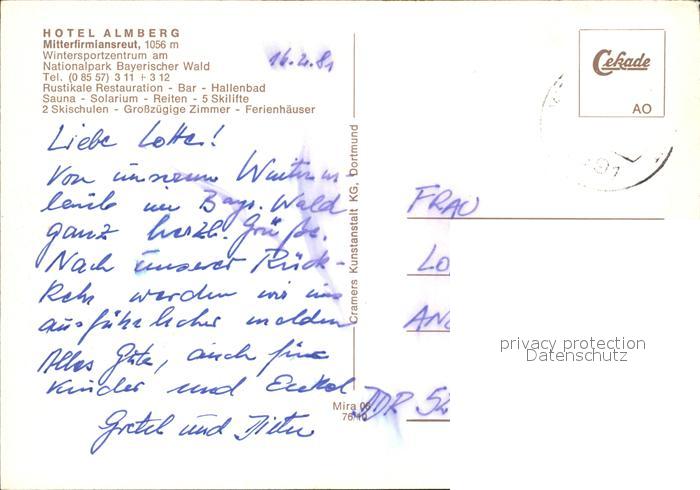 HOTEL ALMBERG
Mitterfirmiansreut, 1056 m
Wintersportzentrum am
Nationalpark Bayerischer Wald
Tel. (0 85 57) 3 11 + 3 12
Rustikale Restauration - Bar - Hallenbad
Sauna - Solarium - Reiten - 5 Skilifte
2 Skischulen - Großzügige Zimmer - Ferienhäuser
16.2.81
Liebe Lotte!
Von unserem Winterur-
laub im Bayr. Wald
ganz herzl. Grüße.
Nach unserer Rück-
kehr werden wir uns
ausführlicher melden
Alles Gute, auch für
Kinder und Enkel
Gretel und Dieter
Cramers Kunstanstalt KG, Dortmund
Mira
76/
Cekade
AO
FRAU
LO
AN
DDR 52
privacy protection
Datenschutz